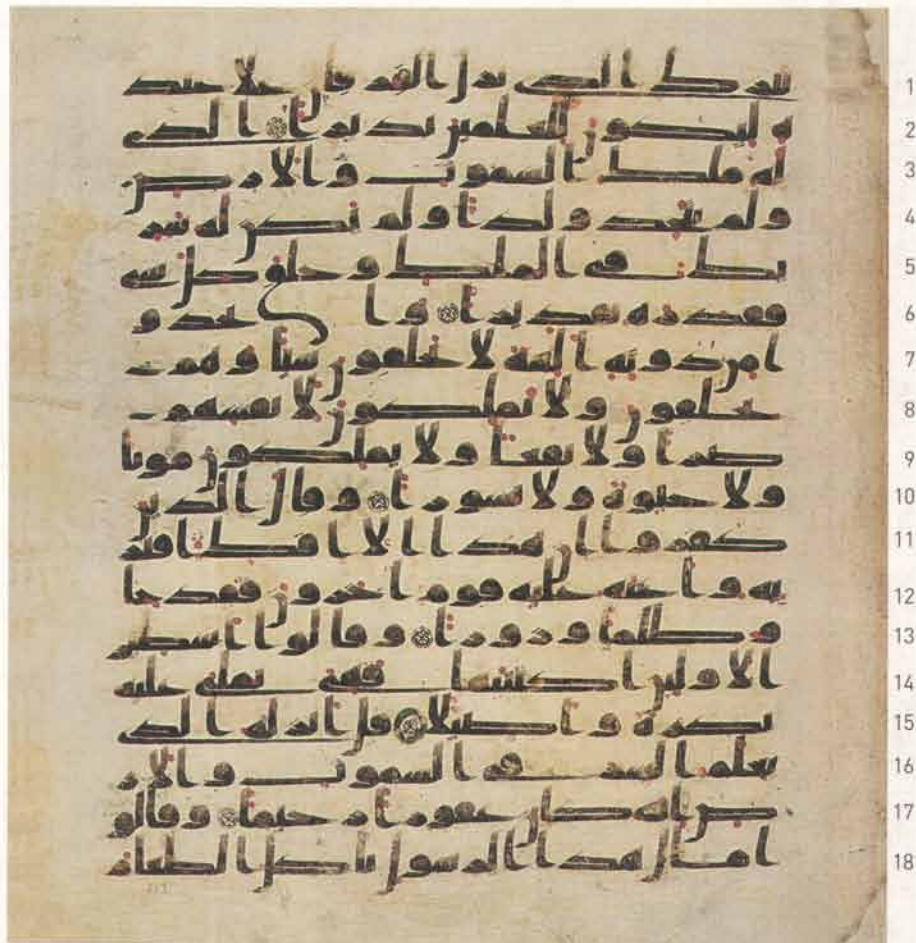 تبرك الذي نزل الفرقن على عبد 1
ه ليكون للعلمين نذيرا الذي 2
له ملك السموت والارض 3
ولم يتخذ ولدا ولم يكن له شر 4
يك في الملك وخلق كل شي 5
فقدره تقديرا وا تخذو 6
ا من دونه الهة لا يخلقون شيا وهم 7
يخلقون ولا يملكون لانفسهم 8
ضرا ولا نفعا ولا يملكون موتا 9
ولا حيوة ولا نشورا وقال الذين 10
كفروا ان هذا الا افك افتر 11
يه واعنه عليه قوم اخرون فقد جا 12
و ظلما وزورا وقالوا اسطير 13
الاولين اكتتبها فهي تملى عليه 14
بكرة واصيلا قل انزله الذي 15
يعلم السر في السموت والار 16
ض انه كان غفورا رحيما وقالو 17
ا مال هذا الرسول ياكل الطعام 18